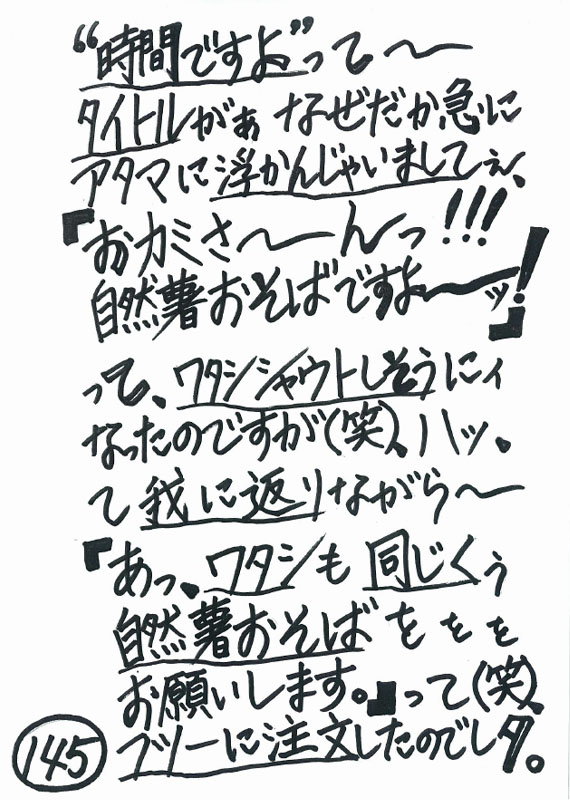 “時間ですよ”って〜
タイトルがぁ なぜだか急に
アタマに浮かんじゃいましてぇ、
『おカミさ〜〜んっ!!!
自然薯おそばですよ〜〜ッ!』
って、ワタシシャウトしそうにィ
なったのですが(笑)、ハッ、
て我に返りながら〜
『あっ、ワタシも同じくぅ
自然薯おそばををを
お願いします。』って(笑)、
フツーに注文したのでしタ。
145